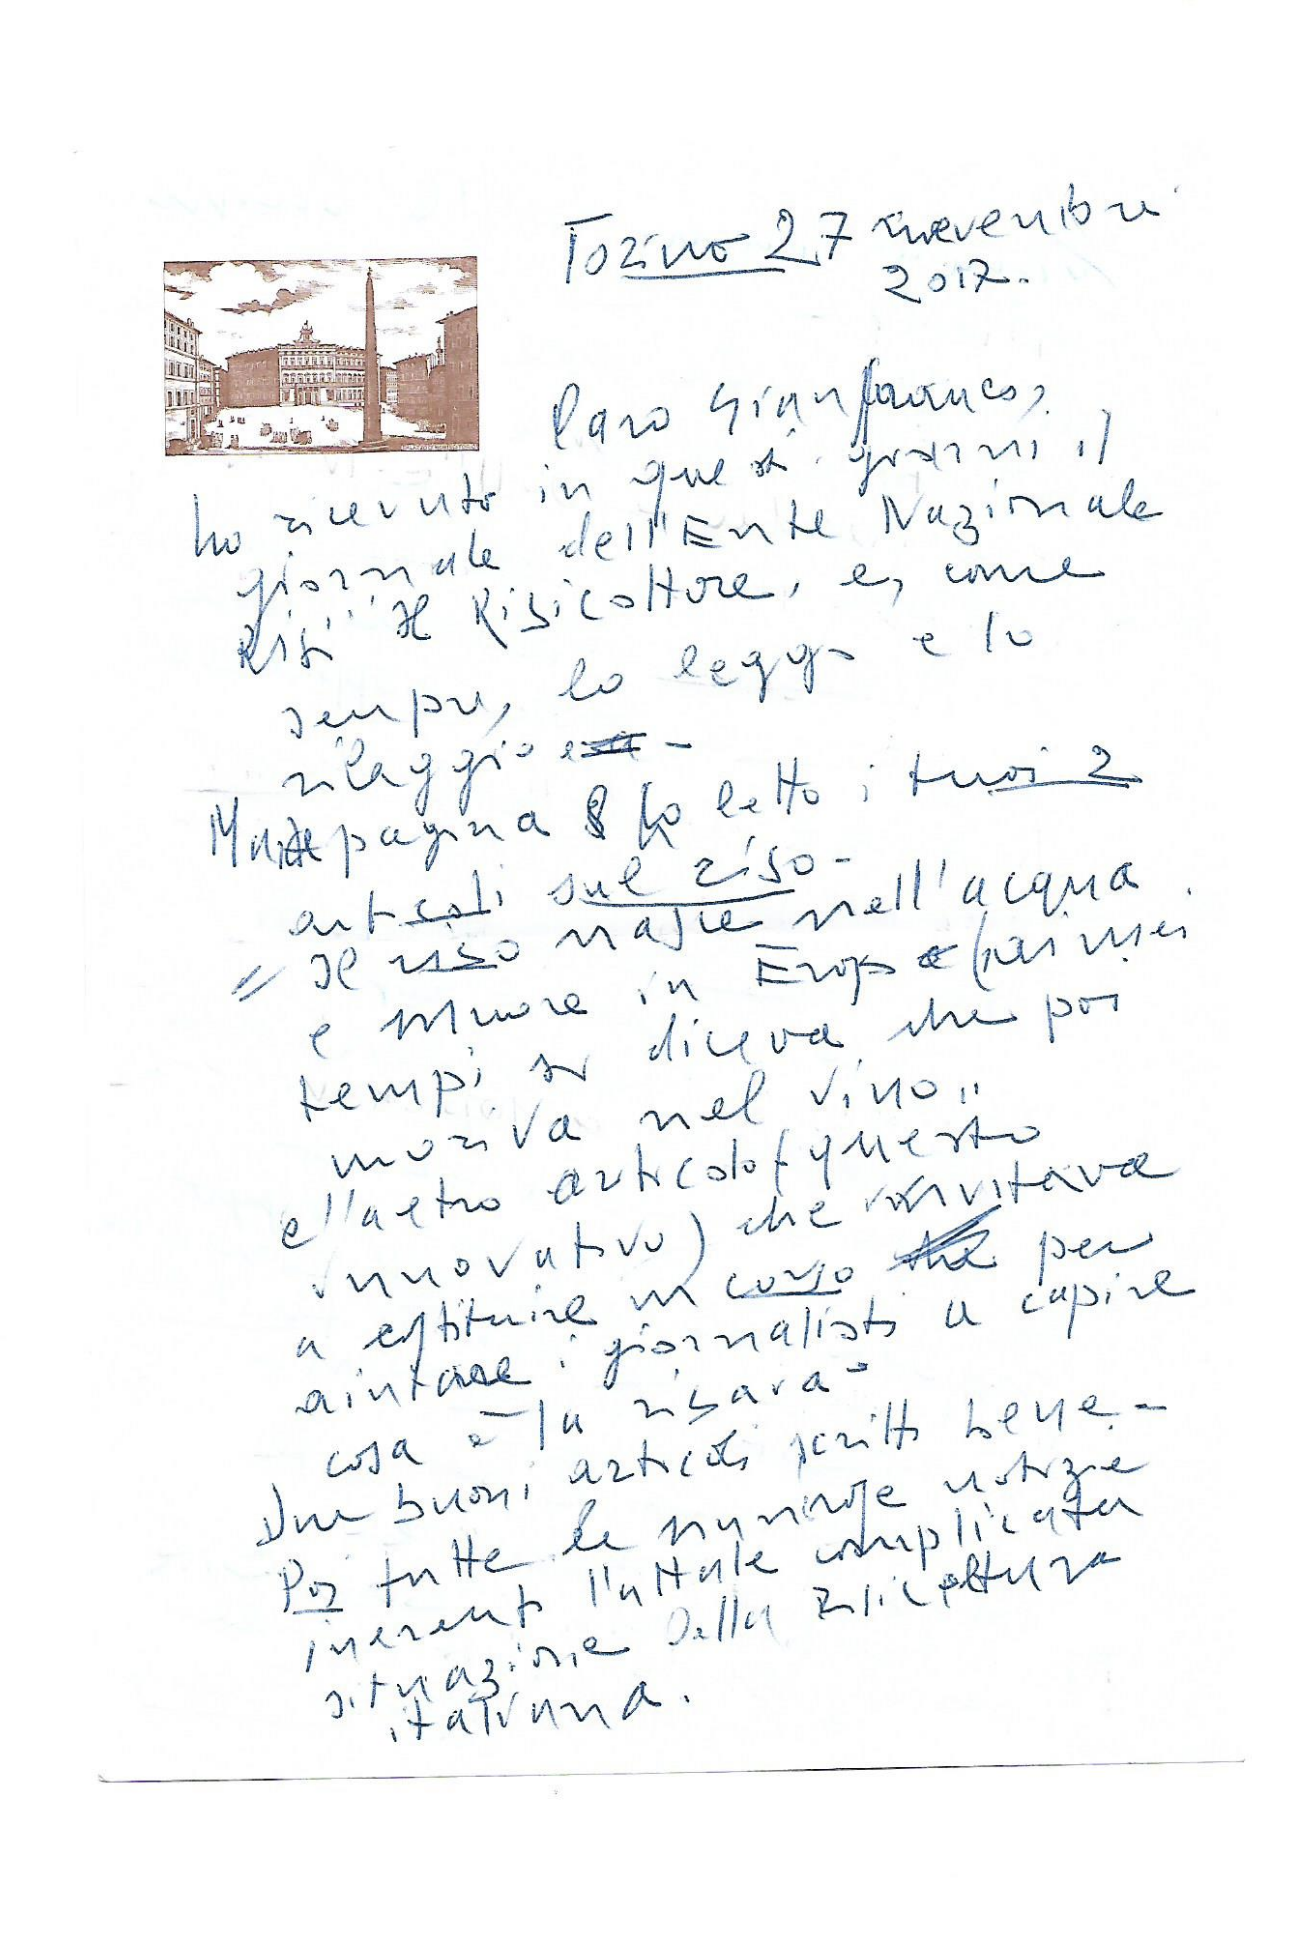 Torino 27 novembre
2017.
Caro Gianfranco,
ho ricevuto in questi giorni il
giornale dell'Ente Nazionale
Risi "Il Risicoltore, e, come
sempre, lo leggo e lo
rileggio
pagina 8 ho letto i tuoi 2
articoli sul riso -
" Il riso nasce nell'acqua
e muore in Europa (ai miei
tempi si diceva che poi
moriva nel vino"
e l'altro articolo (questo
innovativo) che invitava
a costituire un corso per
aiutare i giornalisti a capire
cosa è la risaia -
Due buoni articoli scritti bene -
Poi tutte le numerose notizie
inerenti l'attuale complicata
situazione della risicoltura
italiana.